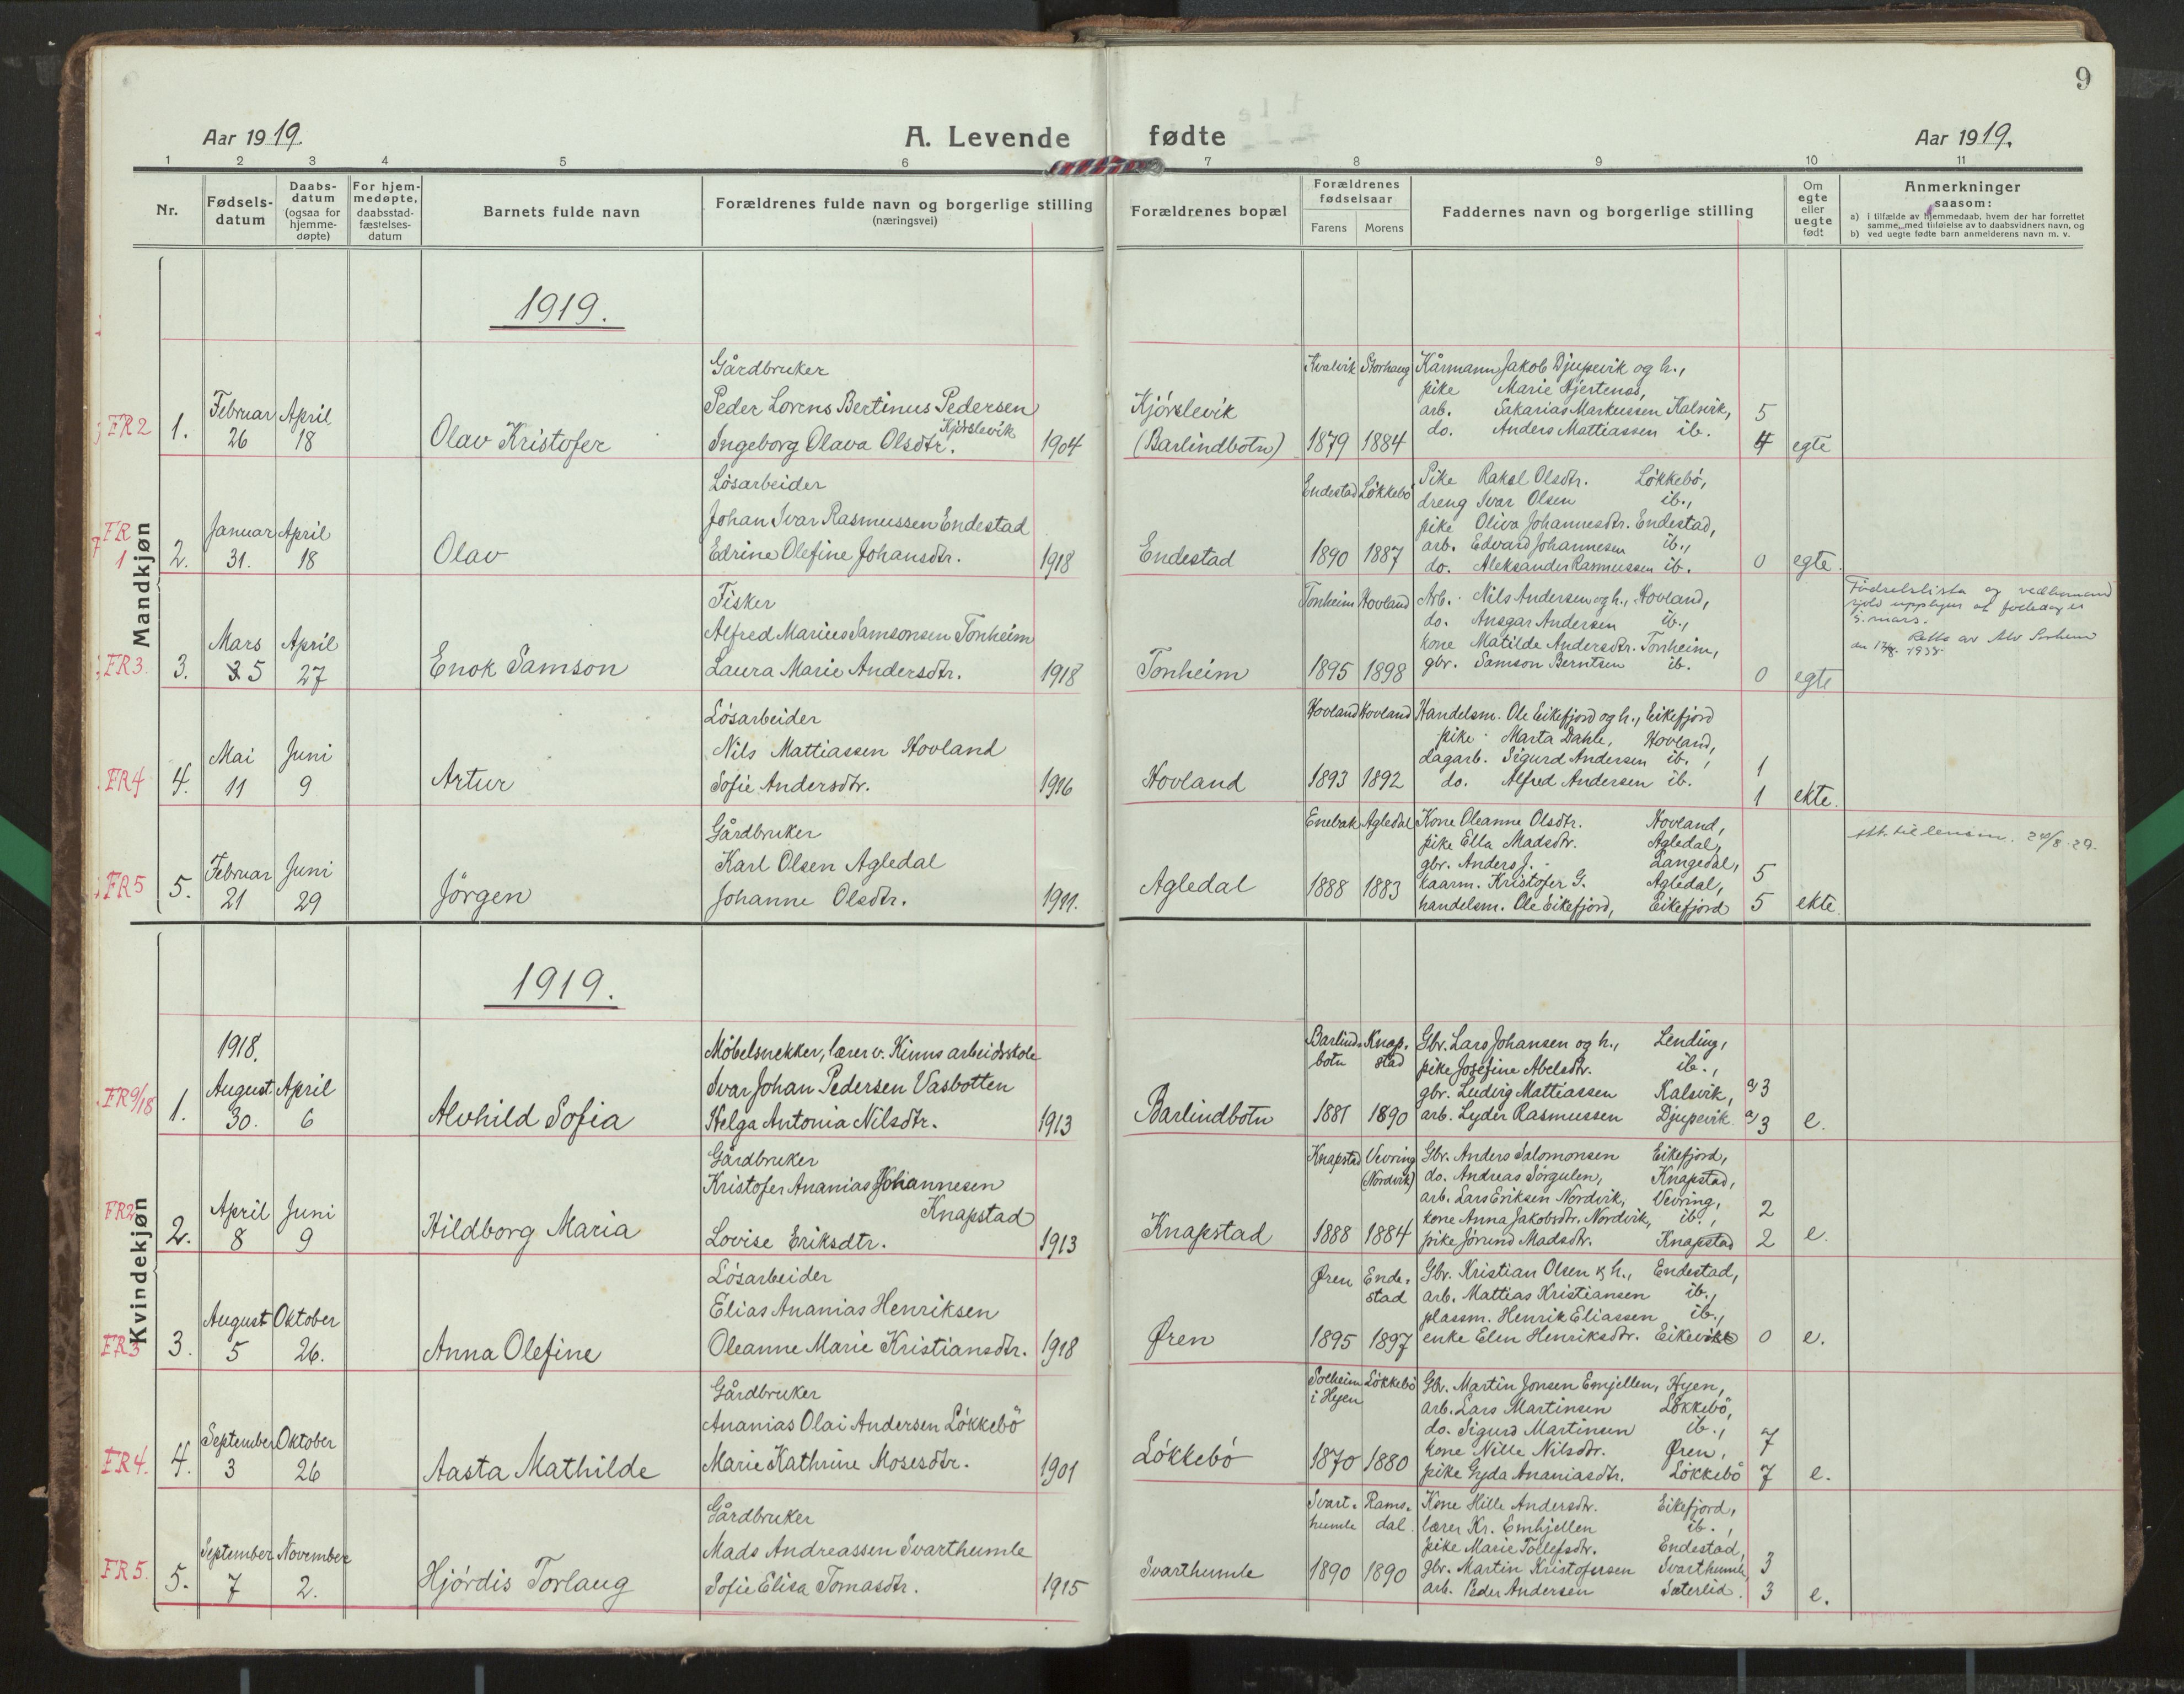 9
Aar 1919.
A. Levende fødte
Aar 1919.
1 2 3 4 5 6 7 8 9 10 11
Nr.
Fødsels-
datum
Daabs-
datum
(ogsaa for
hjemme-
døpte)
For hjem-
medøpte,
daabsstad-
fæstelses-
datum
Barnets fulde navn
Forældrenes fulde navn og borgerlige stilling
(næringsvei)
Forældrenes bopæl
Forældrenes
fødselsaar
Farens Morens
Faddernes navn og borgerlige stilling
Om
egte
eller
uegte
født
Anmerkninger
saasom:
a) i tilfælde av hjemmedaab, hvem der har forrettet
samme, med tilføielse av to daabsvidners navn, og
b) ved uegte fødte barn anmelderens navn m. v.
Mandkjøn
1919.
FR2
1.
Februar
26
April
18
Olav Kristofer
Gårdbruker
Peder Lorens Bertinus Pedersen
Kjörslevik
Ingeborg Olava Olsdtr. 1904
Kjörslevik
(Barlindbotn)
Kvalvik Storhaug
1879 1884
Kårmann Jakob Djupevik og h.,
pike Marie Hjertenes,
arb. Sakarias Markussen Kalvik, 5
do. Anders Mattiassen ib. 4
egte
FR
1
2.
Januar
31.
April
18
Olav
Lösarbeider
Johan Ivar Rasmussen Endestad
Edrine Olefine Johansdtr. 1918
Endestad
Endestad Lökkebö
1890 1887
Pike Rakel Olsdtr. Lökkebö,
dreng Ivar Olsen ib.,
pike Oliva Johannesdtr. Endestad,
arb. Edvard Johannesen ib.,
do. Aleksander Rasmussen ib. 0
egte.
FR3.
3.
Mars
3 5
April
27
Enok Samson
Fisker
Alfred Marius Samsonsen Tonheim
Laura Marie Andersdtr. 1918
Tonheim
Tonheim Hovland
1895 1898
Arb. Nils Andersen og h., Hovland,
do. Ansgar Andersen ib.,
kone Matilde Andersdtr. Tonheim,
gbr. Samson Berntsen ib. 0
egte
Födselslista og
upplyser at födedag er
5. mars.
Retta av
1938.
FR4
4.
Mai
11
Juni
9
Artur
Lösarbeider
Nils Mattiassen Hovland
Sofie Andersdtr. 1916
Hovland
Hovland Hovland
1893 1892
Handelsm. Ole Eikefjord og h., Eikefjord
pike Marta Dahle, Hovland,
dagarb. Sigurd Andersen ib., 1
do. Alfred Andersen ib. 1
ekte.
FR5
5.
Februar
21
Juni
29
Jörgen
Gårdbruker
Karl Olsen Agledal
Johanne Olsdtr. 1911.
Agledal
Enebak Agledal
1888 1883
Kone Oleanne Olsdtr. Hovland,
pike Ella Madsdtr. Agledal,
gbr. Anders J. Langedal, 5
kaarm. Kristofer G. Agledal,
handelsm. Ole Eikefjord, Eikefjord 5
ekte.
Att. til lensm. 24/8.29.
Kvindekjøn
1919.
FR9/18
1.
1918.
August
30.
April
6
Alvhild Sofia
Möbelsnekker, lærer v. Kinns arbeidsskole
Ivar Johan Pedersen Vasbotten
Helga Antonia Nilsdtr. 1913
Barlindbotn
Barlind-
botn
Knap-
stad
1881 1890
Gbr. Lars Johansen og h., Lending,
pike Josefine Abelsdtr. ib.,
gbr. Ludvig Mattiassen Kalsvik, 3
arb. Lyder Rasmussen Djupevik. 3
e.
FR2
2.
April
8
Juni
9
Hildborg Maria
Gårdbruker
Kristofer Ananias Johannesen
Knapstad
Lovise Eriksdtr. 1913
Knapstad
Knapstad Vevring
(Nordvik)
1888 1884
Gbr. Anders Salomonsen Eikefjord,
do. Andreas Sörgulen, Knapstad,
arb. Lars Eriksen Nordvik, Vevring,
kone Anna Jakobsdtr. Nordvik, ib., 2
pike Jörund Madsdtr. Knapstad 2
e.
FR3
3.
August
5
Oktober
26.
Anna Olefine
Lösarbeider
Elias Ananias Henriksen
Oleanne Marie Kristiansdtr. 1918
Øren
Øren Ende-
stad
1895 1897
Gbr. Kristian Olsen & h., Endestad,
arb. Mattias Kristiansen ib.,
plassm. Henrik Eliassen ib.,
enke Elen Henriksdtr. 0
e.
FR4.
4.
September
3
Oktober
26
Aasta Mathilde
Gårdbruker
Ananias Olai Andersen Lökkebö
Marie Kathrine Mosesdtr. 1901
Lökkebö
Solheim
i Hyen
Lökkebö
1870 1880
Gbr. Martin Jonsen Emjellen, Hyen,
arb. Lars Martinsen Lökkebö,
do. Sigurd Martinsen ib.,
kone Nille Nilsdtr. Øren, 7
pike Gyda Ananiasdtr. Lökkebö 7
e.
FR5.
5.
September
7
November
2.
Hjördis Torlaug
Gårdbruker
Mads Andreassen Svarthumle
Sofie Elisa Tomasdtr. 1915
Svarthumle
Svart-
humle
Rams-
dal
1890 1890
Kone Hille Andersdtr. Eikefjord,
lærer Kr. Emhjellen ib.,
pike Marie Tollefsdtr. Endestad,
gbr. Martin Kristofersen Svarthumle 3
arb. Peder Andersen Sæterlid. 3
e.